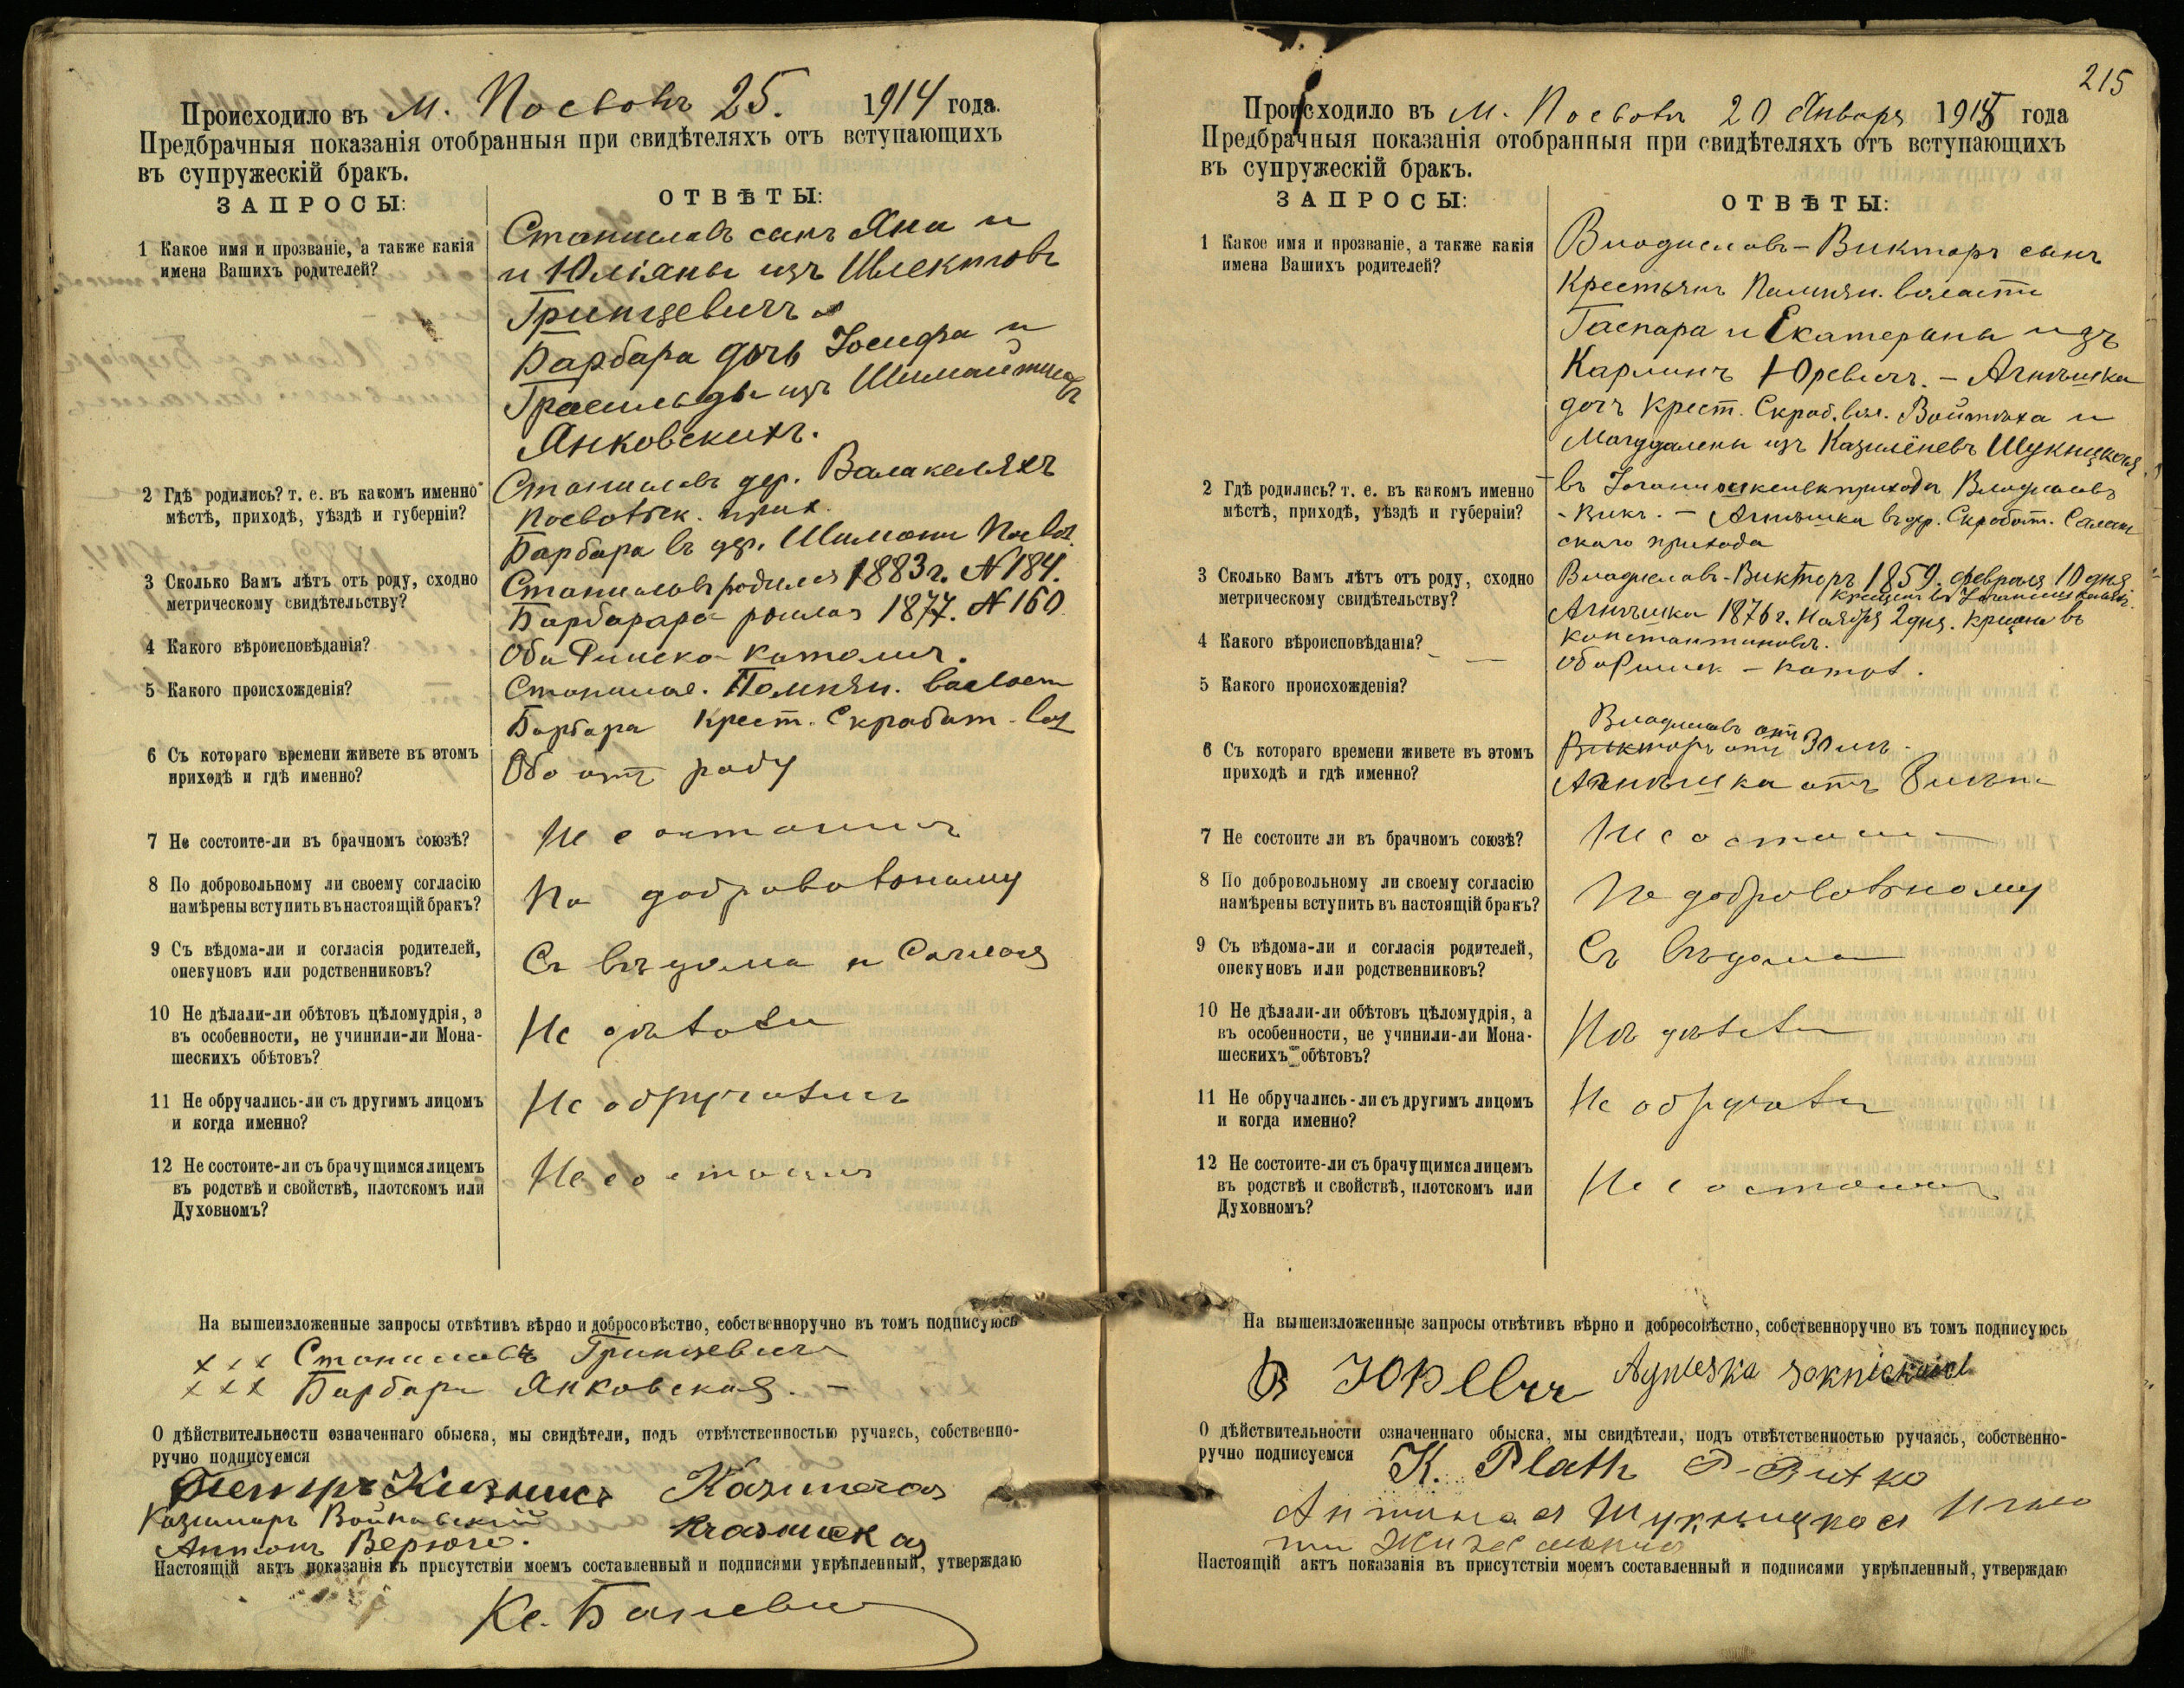 Происходило въ м. Посволь 25. 1914 года.
Предбрачныя показанія отобранныя при свидѣтеляхъ отъ вступающихъ
въ супружескій бракъ.
ЗАПРОСЫ:
ОТВѢТЫ:
1 Какое имя и прозваніе, а также какія
имена Вашихъ родителей?
Станиславъ сынъ Яна и
и Юліяны изъ
Гринцевичъ
Барбара дочь Іосифа и
изъ
Янковскихъ.
2 Гдѣ родились? т. е. въ какомъ именно
мѣстѣ, приходѣ, уѣздѣ и губерніи?
Станиславъ дер. Валакеляхъ
Посвольск. прих.
Барбара въ дер. Шимони Посвол.
3 Сколько Вамъ лѣтъ отъ роду, сходно
метрическому свидѣтельству?
Станиславъ родился 1883 г. № 184.
1877. № 160
4 Какого вѣроисповѣданія?
Оба Римско-католич.
5 Какого происхожденія?
Станисл. Помнян. волост
Барбара крест. Скрабат. вол
6 Съ котораго времени живете въ этомъ
приходѣ и гдѣ именно?
Оба отъ роду
7 Не состоите-ли въ брачномъ союзѣ?
Не состоимъ
8 По добровольному ли своему согласію
намѣрены вступить въ настоящій бракъ?
По добровольному
9 Съ вѣдома-ли и согласія родителей,
опекуновъ или родственниковъ?
Съ вѣдома и согласія
10 Не дѣлали-ли обѣтовъ цѣломудрія, а
въ особенности, не учинили-ли Мона-
шескихъ обѣтовъ?
Не дѣлали
11 Не обручались-ли съ другимъ лицомъ
и когда именно?
Не обручались
12 Не состоите-ли съ брачущимся лицемъ
въ родствѣ и свойствѣ, плотскомъ или
Духовномъ?
Не состоимъ
На вышеизложенные запросы отвѣтивъ вѣрно и добросовѣстно, собственноручно въ томъ подписуюсь
xxx Станиславъ Гринцевичъ
xxx Барбара Янковская. –
О дѣйствительности означеннаго обыска, мы свидѣтели, подъ отвѣтственностью ручаясь, собственно-
ручно подписуемся
Петръ
Казимиръ
Антонъ
Настоящій актъ показанія въ присутствіи моемъ составленный и подписями укрѣпленный, утверждаю
Кс. Баневи
215
Происходило въ м. Посволь 20 Января 1915 года
Предбрачныя показанія отобранныя при свидѣтеляхъ отъ вступающихъ
въ супружескій бракъ.
ЗАПРОСЫ:
ОТВѢТЫ:
1 Какое имя и прозваніе, а также какія
имена Вашихъ родителей?
Владиславъ-Викторъ сынъ
Крестьянъ Помнян. волости
Гаспара и Екатерины изъ
Карлинъ Юревичъ. – Агнѣшка
дочъ крест. Скраб. вол. Войтѣха и
Магдалены изъ
2 Гдѣ родились? т. е. въ какомъ именно
мѣстѣ, приходѣ, уѣздѣ и губерніи?
въ прихода Владиславъ
- Викт. – Агнѣшка въ дер. Скробот. Салат
скаго прихода
3 Сколько Вамъ лѣтъ отъ роду, сходно
метрическому свидѣтельству?
Владиславъ-Викторъ 1859. февраля 10 дня
крещенъ въ
Агнѣшка 1876 г. Ноября 2 дня. крщена въ
Константиновѣ.
4 Какого вѣроисповѣданія?
Оба Римск – катол.
5 Какого происхожденія?
6 Съ котораго времени живете въ этомъ
приходѣ и гдѣ именно?
Владиславъ отъ
Викторъ отъ 30 лѣ.
Агнѣшка отъ
7 Не состоите ли въ брачномъ союзѣ?
Не состоим
8 По добровольному ли своему согласію
намѣрены вступить въ настоящій бракъ?
По добровольному
9 Съ вѣдома-ли и согласія родителей,
опекуновъ или родственниковъ?
Съ вѣдома
10 Не дѣлали-ли обѣтовъ цѣломудрія, а
въ особенности, не учинили-ли Мона-
шескихъ обѣтовъ?
Не дѣлали
11 Не обручались-ли съ другимъ лицомъ
и когда именно?
Не обручали
12 Не состоите-ли съ брачущимся лицемъ
въ родствѣ и свойствѣ, плотскомъ или
Духовномъ?
Не состоимъ
На вышеизложенные запросы отвѣтивъ вѣрно и добросовѣстно, собственноручно въ томъ подписуюсь
В Юревичъ Agnieszka
О дѣйствительности означеннаго обыска, мы свидѣтели, подъ отвѣтственностью ручаясь, собственно-
ручно подписуемся
K. Plath
Настоящій актъ показанія въ присутствіи моемъ составленный и подписями укрѣпленный, утверждаю